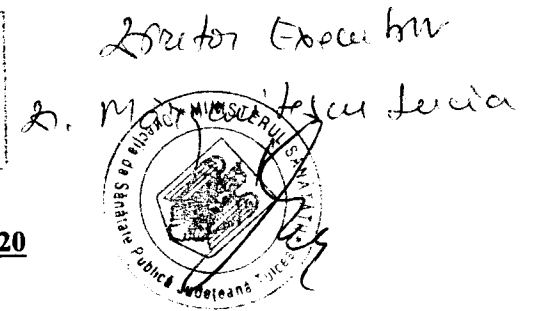 Director Executiv
Dr. Lucia
MINISTERUL SĂNĂTĂȚII
Direcția de Sănătate Publică Județeană Tulcea
20